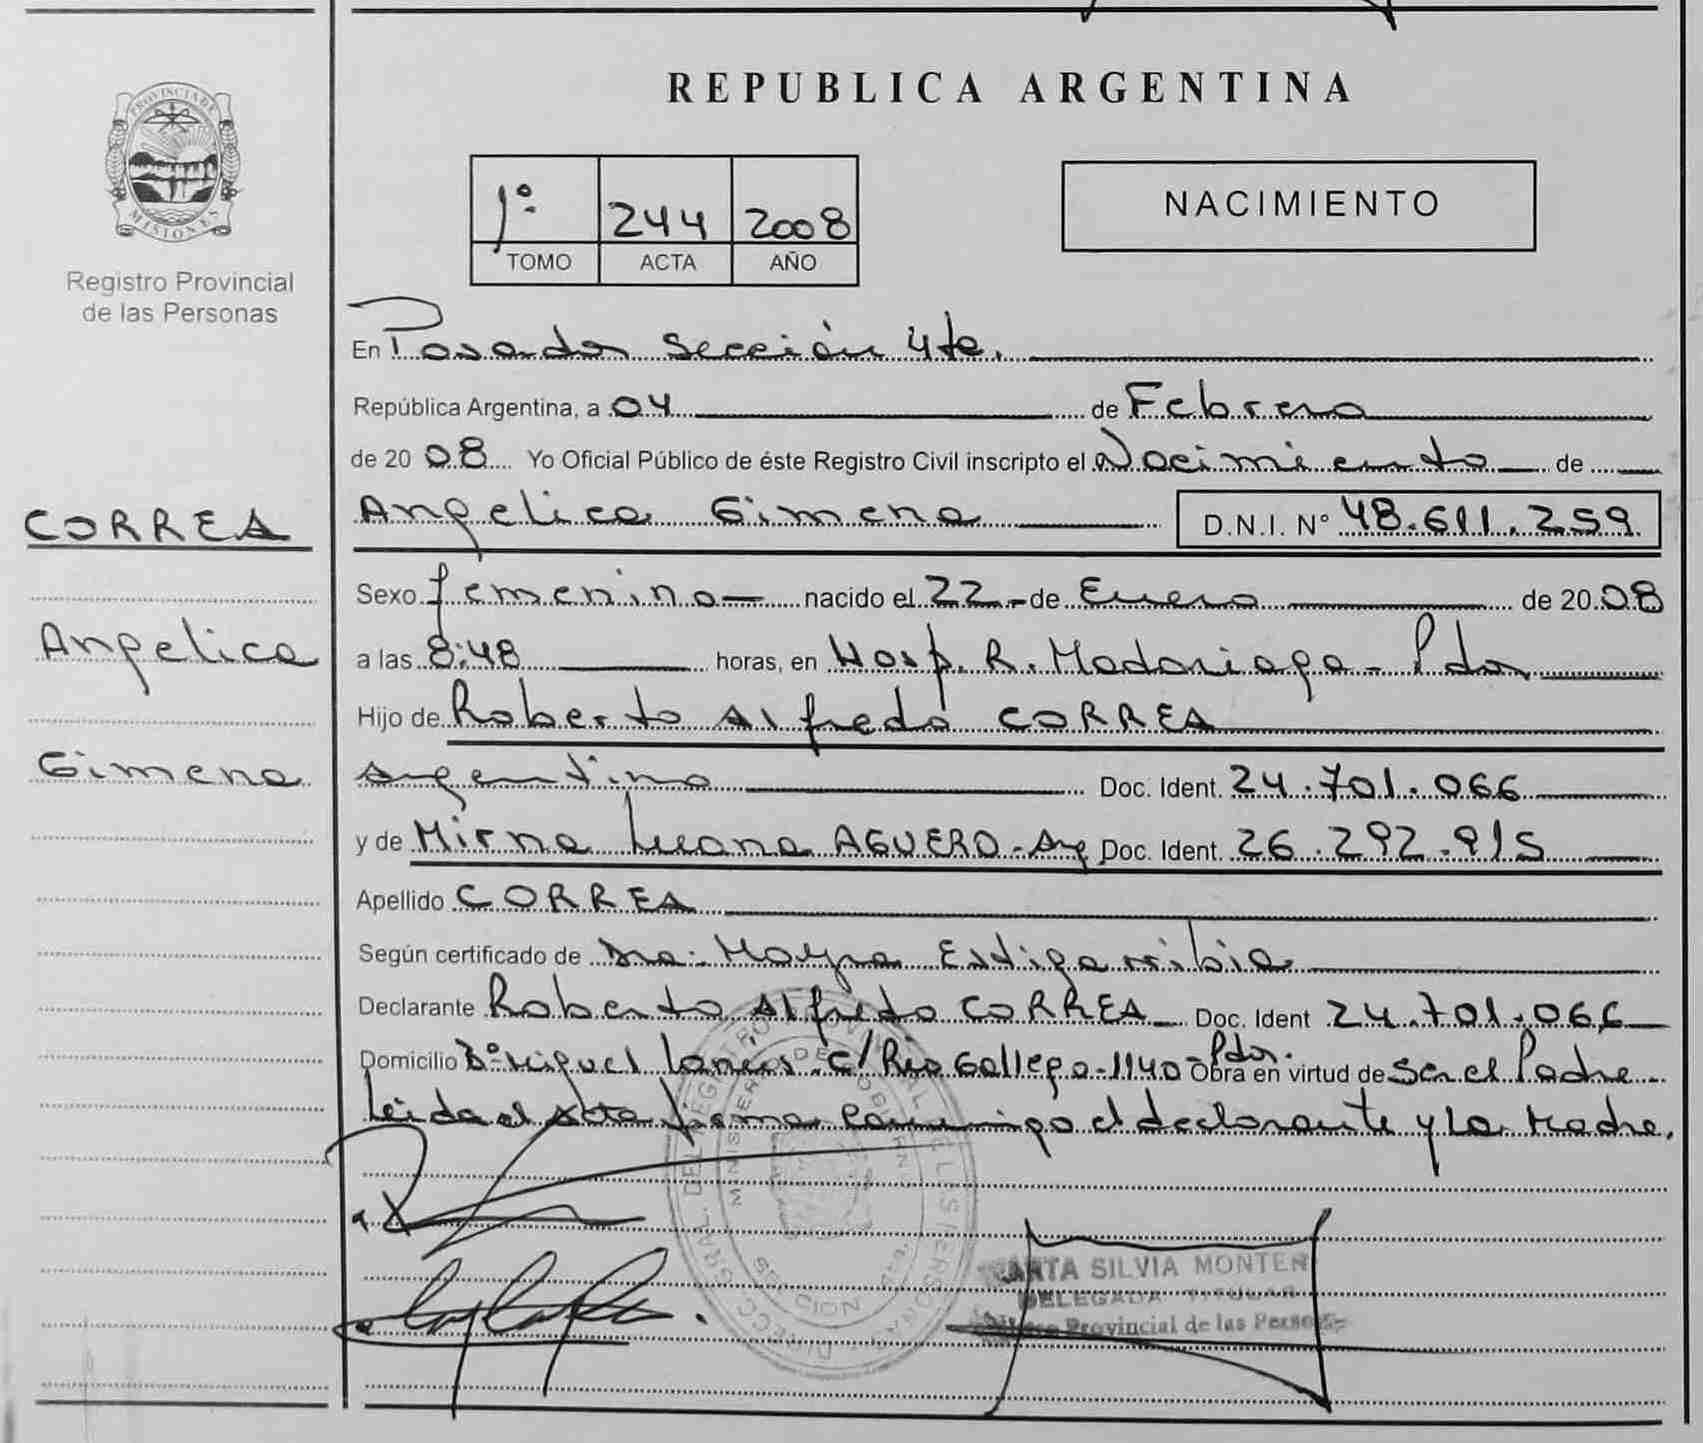 REPUBLICA ARGENTINA
PROVINCIA DE
MISIONES
Registro Provincial
de las Personas
1º 244 2008
TOMO ACTA AÑO
NACIMIENTO
En Posadas Sección 4ta.
República Argentina, a 04 de Febrero
de 2008 Yo Oficial Público de éste Registro Civil inscripto el Nacimiento de
CORREA
Angelica Gimena D.N.I. Nº 48.611.259
Sexo femenino nacido el 22 de Enero de 2008
Angelica
a las 8:48 horas, en Hosp. R. Madariaga - Pdas
Hijo de Roberto Alfredo CORREA
Gimena
Argentino Doc. Ident. 24.701.066
y de Mirna Luana AGUERO - Arg Doc. Ident. 26.292.915
Apellido CORREA
Según certificado de Dra. Mayra Estigarribia
Declarante Roberto Alfredo CORREA Doc. Ident 24.701.066
Domicilio Bº Miguel Lanús. c/ Rio Gallego - 1140 - Pdas. Obra en virtud de Ser el Padre -
Leida el Acta firma conmigo el declarante y La Madre.
SILVIA MONTEN
DELEGADA TITULAR
Provincial de las Personas